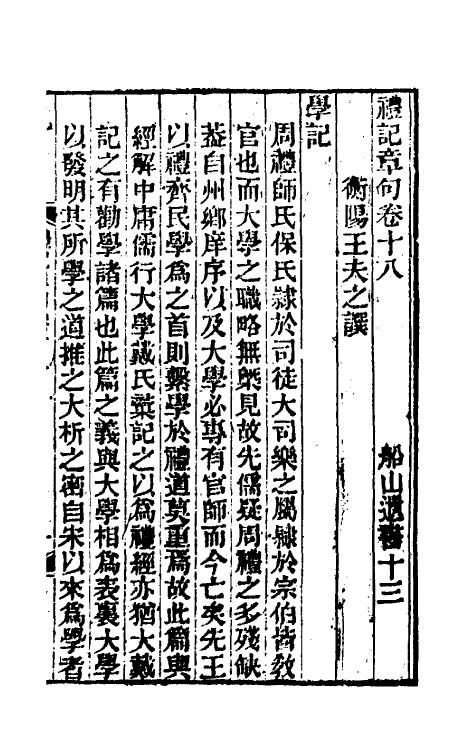 禮記章句卷十八
船山遺書十三
衡陽王夫之譔
學記
周禮師氏保氏隷於司徒大司樂之屬隷於宗伯皆敎
官也而大學之職略無槩見故先儒疑周禮之多殘缺
葢自州鄉庠序以及大學必專有官師而今亡矣先王
以禮齊民學爲之首則繫學於禮道莫重焉故此篇與
經解中庸儒行大學戴氏彙記之以爲禮經亦猶大戴
記之有勸學諸篇也此篇之義與大學相爲表裏大學
以發明其所學之道推之大析之密自宋以來爲學者